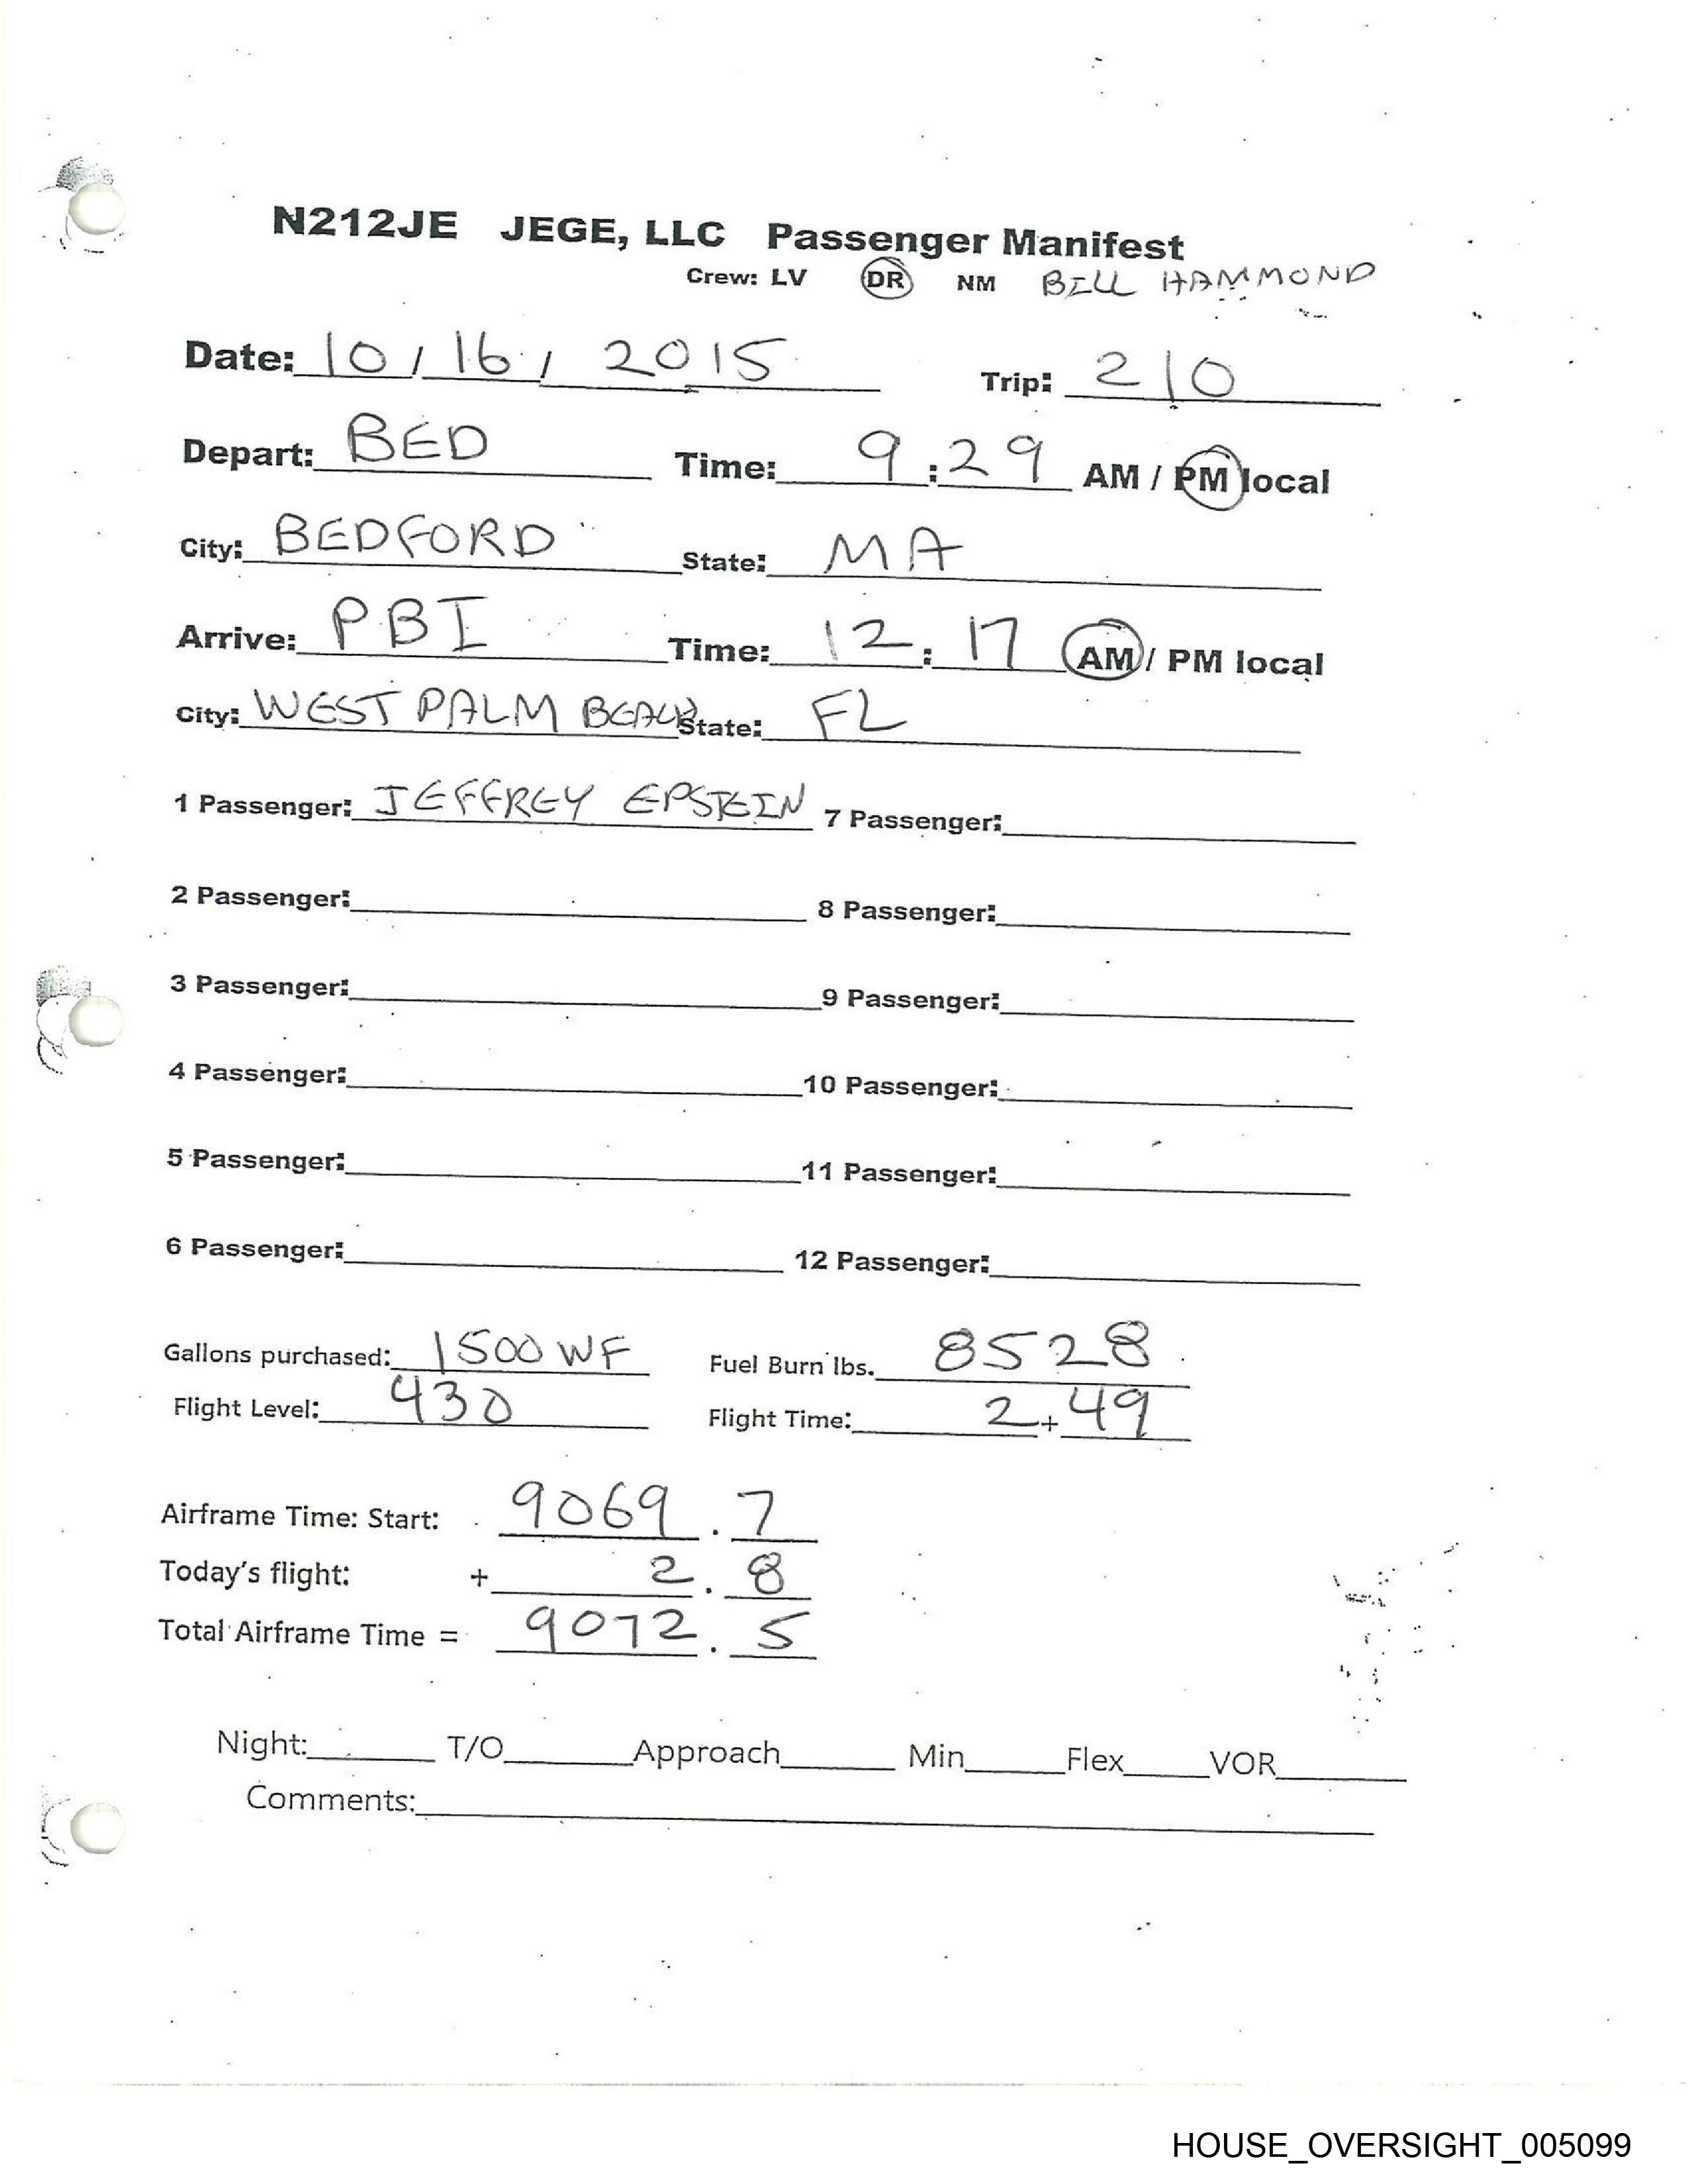 N212JE JEGE, LLC Passenger Manifest
Crew: LV DR NM BILL HAMMOND
Date: 10 / 16 / 2015 Trip: 210
Depart: BED Time: 9:29 AM / PM local
City: BEDFORD State: MA
Arrive: PBI Time: 12:17 AM / PM local
City: WEST PALM BEACH State: FL
1 Passenger: JEFFREY EPSTEIN 7 Passenger:
2 Passenger: 8 Passenger:
3 Passenger: 9 Passenger:
4 Passenger: 10 Passenger:
5 Passenger: 11 Passenger:
6 Passenger: 12 Passenger:
Gallons purchased: 1500 WF Fuel Burn lbs. 8528
Flight Level: 430 Flight Time: 2+49
Airframe Time: Start: 9069.7
Today's flight: + 2.8
Total Airframe Time = 9072.5
Night: T/O Approach Min Flex VOR
Comments:
HOUSE_OVERSIGHT_005099